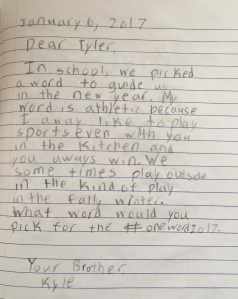 January 6, 2017
Dear Tyler,
In school, we picked
a word to guide us
in the new year. My
word is athletic because
I away like to play
sports even with you
in the kitchen and
you aways win. We
some times play outside
in the kind of play
in the fall, winter.
What word would you
pick for the #oneword2017.
Your Brother,
Kyle